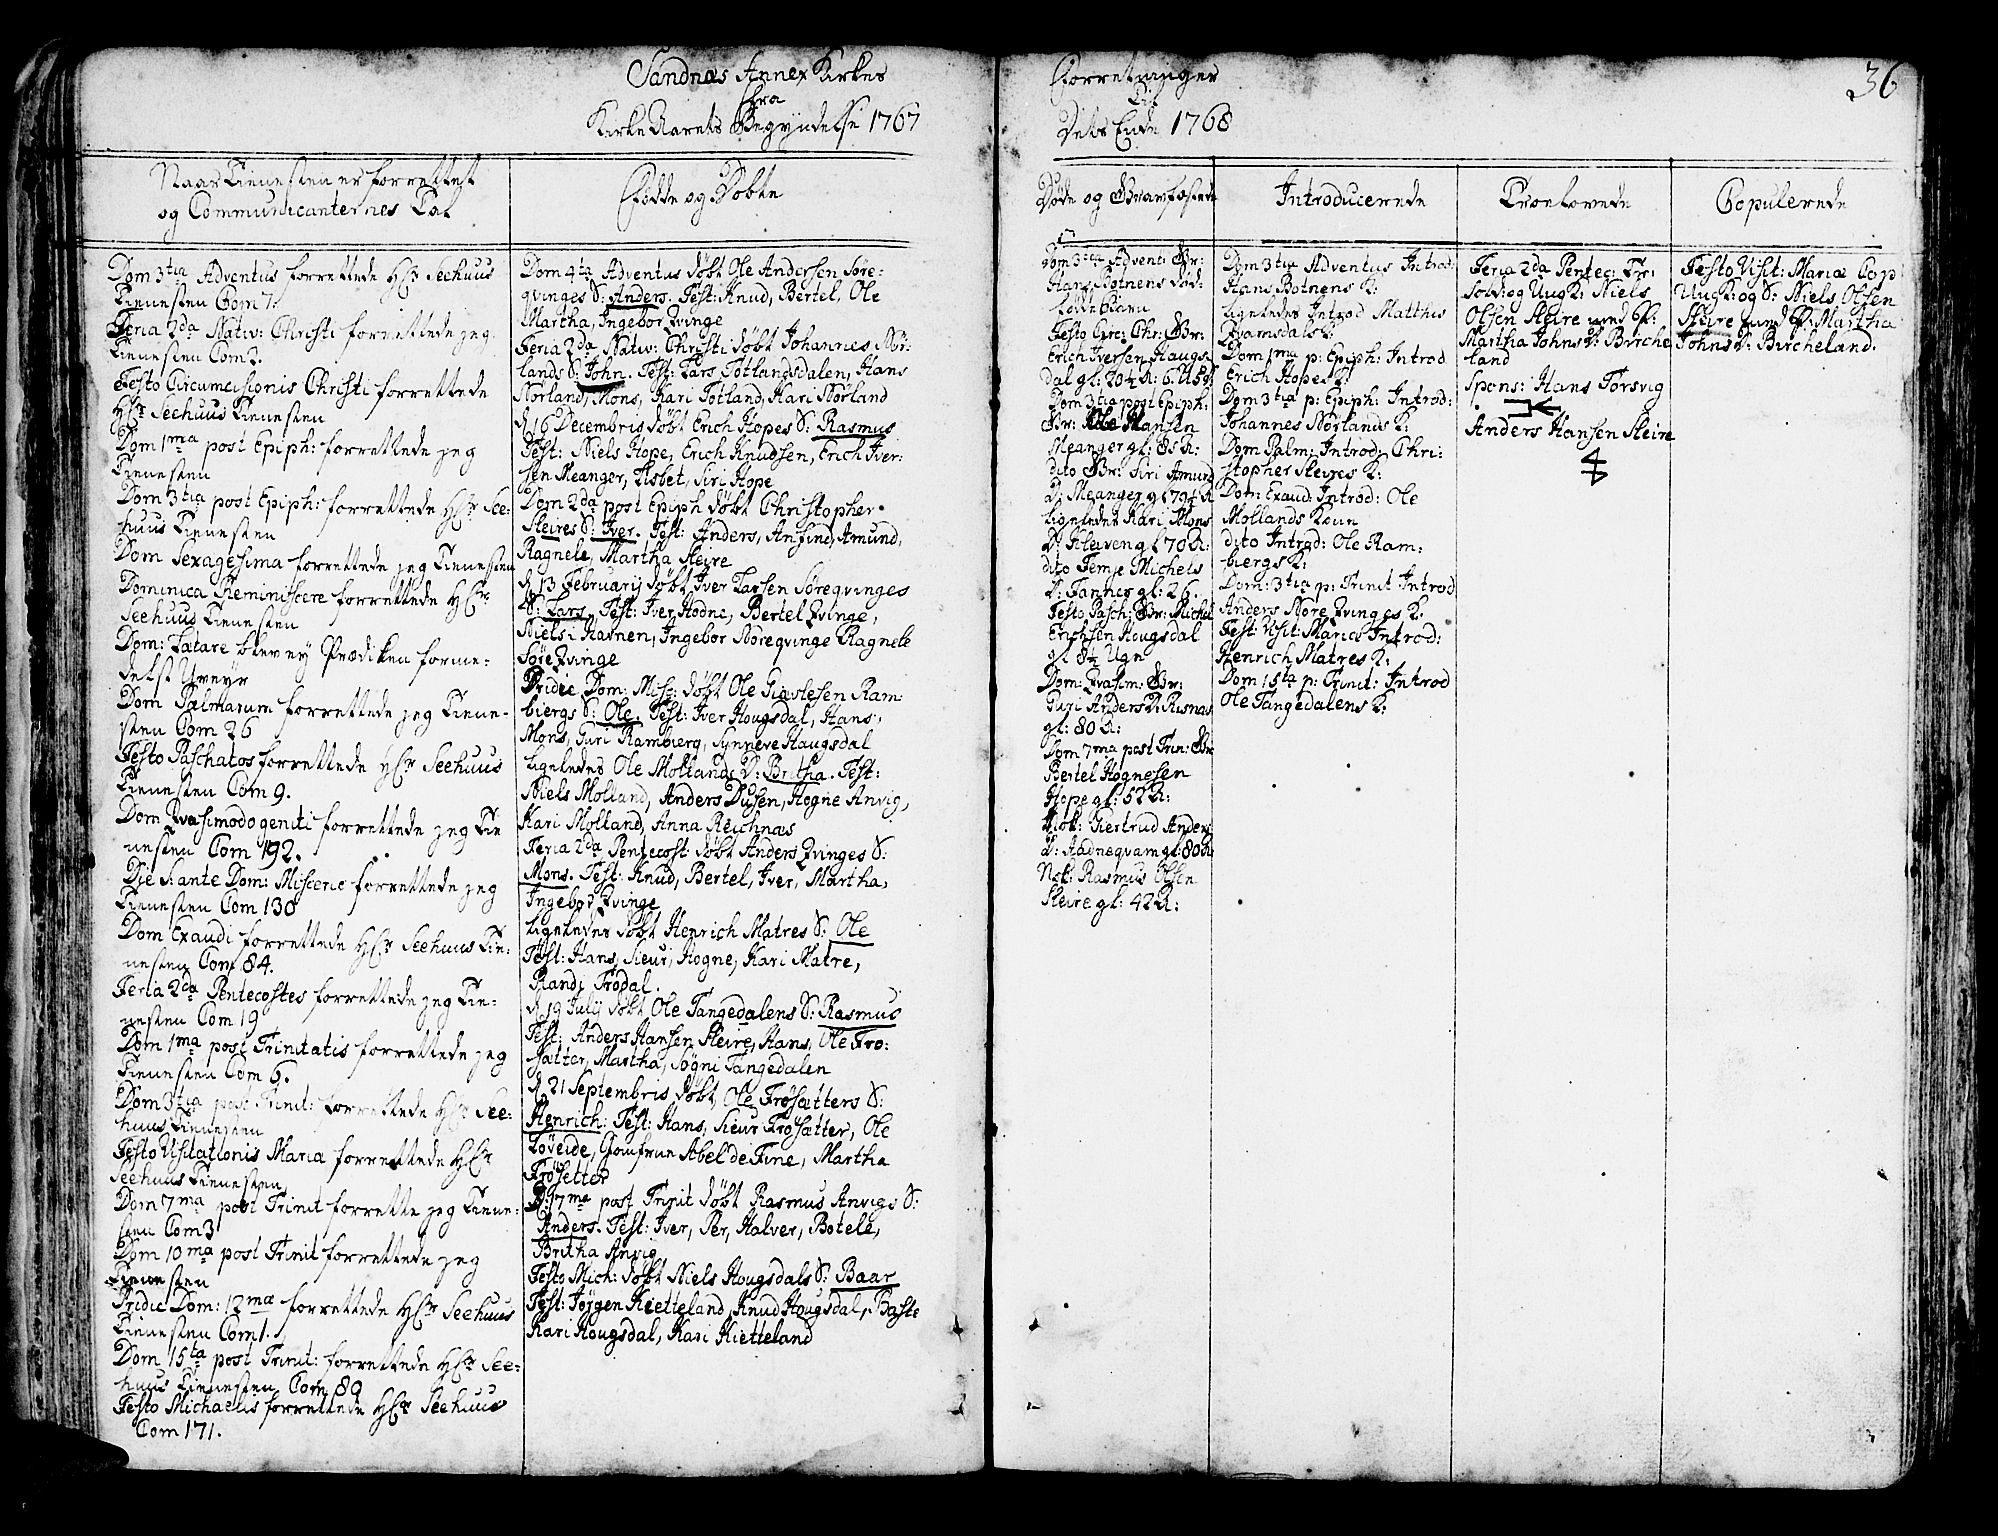 Sandnæs Annex Kirkes
fra
Kirke Aarets Begyndelse 1767
Naar Tienesten er forrettet
og Communicanternes Tal
Fødde og Døbte
Dom 3tia Adventus forrettede Hr Seehuus
Tienesten Com 7.
Feria 2da Nativ: Christi forrettede jeg
Tienesten Com 2.
Festo Circumcisionis Christi forrettede
Hr Seehuus Tienesten
Dom 1ma post Epiph: forrettede jeg
Tienesten
Dom 3tia post Epiph: forrettede Hr See-
huus Tienesten
Dom Sexagesima forrettede jeg Tienesten
Dominica Reminiscere forrettede Hr
Seehuus Tienesten
Dom: Lætare blev ej Prædiken forme-
delst Uveyr
Dom Palmarum forrettede jeg Tiene-
sten Com 26
Festo Paschatos forrettede Hr Seehuus
Tienesten Com 9.
Dom Qvasimodogeniti forrettede jeg Tie
nesten Com 192.
Die S: ante Dom: Misceric forrettede jeg
Tienesten Com 130
Dom Exaudi forrettede Hr Seehuus Tie-
nesten Com 84.
Feria 2da Pentecostes forrettede jeg Tie-
nesten Com 19
Dom 1ma post Trinitatis forrettede jeg
Tienesten Com 6.
Dom 3tia post Trinit: forrettede Hr See-
huus Tienesten
Festo Visitationis Maria forrettede Hr
Seehuus Tienesten
Dom 7ma post Trinit forrette jeg Tiene-
sten Com 3
Dom 10ma post Trinit forrettede jeg
Tienesten
Pridie Dom: 12mæ forrettede Hr Seehuus
Tienesten Com 1.
Dom 15ta post Trinit: forrettede Hr See-
huus Tienesten Com 80
Festo Michaelis forrettede Hr Seehuus
Com 171.
Dom 4ta Adventus døbt Ole Andersen Søre-
qvinges S: Anders. Test: Knud, Bertel, Ole
Martha, Ingebor Qvinge
Feria 2da Nativ: Christi døbt Johannes Nør-
lands S: John. Test: Lars Totlandsdalen, Hans
Norland, Mons, Kari Totland, Kari Nørland
d. 16 Decembris døbt Erich Hopes S: Rasmus
Test: Niels Hope, Erich Knudsen, Erich Iver-
sen Meanger, Lisbet, Siri Hope
Dom 2da post Epiph døbt Christopher
Sleires S: Iver. Test: Anders, Anfind, Amund,
Ragnele, Martha Sleire
d. 13 Februarij døbt Iver Larsen Søreqvinges
S: Lars. Test: Iver Hodne, Bertel Qvinge,
Niels i Kavnen, Ingebor Nøreqvinge Ragnele
Søre Qvinge
Pridie Dom: Misc: døbt Ole Giæslesen Ram-
biergs S: Ole. Test: Iver Hougsdal, Hans,
Mons, Guri Ramberg, Synneve Haugsdal
Ligeledes Ole Mollands D: Britha. Test:
Niels Molland, Anders Dusen, Hogne Anvig,
Kari Molland, Anna Reichnæs
Feria 2da Pentecost: døbt Anders Qvinges S:
Mons. Test: Knud, Bertel, Iver, Martha,
Ingebor Qvinge
Ligeledes døbt Henrich Matres S: Ole
Test: Hans, Sieur, Hogne, Kari Matre,
Randi Trodal.
d. 19 July døbt Ole Tangedalens S: Rasmus
Test: Anders Hansen Sleire, Hans, Ole Frø-
sætter, Martha, Søgni Tangedalen
d. 21 Septembris døbt Ole Frøsætters S:
Henrich: Test: Hans, Sieur Frøsætter, Ole
Løveide, Jomfrue Abel de Fine, Martha
Frøsetter
D: 17ma post Trinit døbt Rasmus Anvigs S:
Anders. Test: Iver, Per, Halver, Botele,
Britha Anvig
Festo Mich: døbt Niels Hougsdals S: Baar
Test: Jørgen Kietteland, Knud Hougsdal, Baste
Kari Hougsdal, Kari Kietteland
Forretninger
Til
Dets Ende 1768
36
Døde og Gravfæstede
Introducerede
Troelovede
Copulerede
Dom 3tia Advent: Gr:
Hans Botnens død-
fødte Barn
Festo Circ: Chr: Gr:
Erich Iversen Haugs-
dal gl: 20¼ A: 6. U 5 d
Dom 3tia post Epiph:
Gr: Ole Hansen
Meanger gl: 85 A:
dito Gr: Siri Amund
D: Meanger gl 79½ A
Ligeledes Kari Mons
D: Kleiven gl 70 A:
dito Temje Michels
D: Fanher gl: 26.
Festo Pasch: Gr: Michel
Erichsen Hougsdal
gl 8½ Ugn
Dom: Qvasim: Gr:
Guri Anders D: Risnæs
gl: 80 A:
Dom 7ma post Trin: Gr
Bertel Hognesen
Hope gl: 52 A:
Nok: Giertrud Anders
D: Aadneqvam gl: 80 A
Nok: Rasmus Olsen
Sleire gl: 42 A:
Dom 3tia Adventus Introd:
Hans Botnens K:
Ligeledes Introd Matthis
Qvamsdals K:
Dom 1ma p: Epiph: Introd
Erich Hopes K:
Dom 3tia p: Epiph: Introd:
Johannes Nørlands K:
Dom Palm: Introd: Chri-
stopher Sleires K:
Dom: Exaud: Introd: Ole
Mollands Kone
dito Introd: Ole Ram-
biergs K:
Dom: 3tia p: Trinit Introd
Anders Nøre Qvinges K:
Fest: Visit: Mariæ Introd:
Henrich Matres K:
Dom 15ta p: Trinit: Introd
Ole Tangedalens K:
Feria 2da Pentec: Tr:
Sold: og Ung K: Niels
Olsen Sleire med P:
Martha Johns D: Birche
land
Spons: Hans Torsvig
Anders Hansen Sleire
Festo Visit: Mariæ Cop
Ung K: og S: Niels Olsen
Sleire med P: Martha
Johns D: Bircheland.